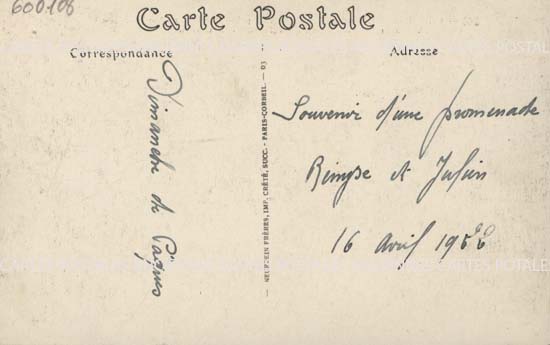 600108
Carte Postale
Correspondance
Adresse
Dimanche de Pâques
NEURDEIN FRÈRES, IMP. CRÉTÉ, SUCC. - PARIS-CORBEIL —
Souvenir d'une promenade
et Julien
16 avril 1922